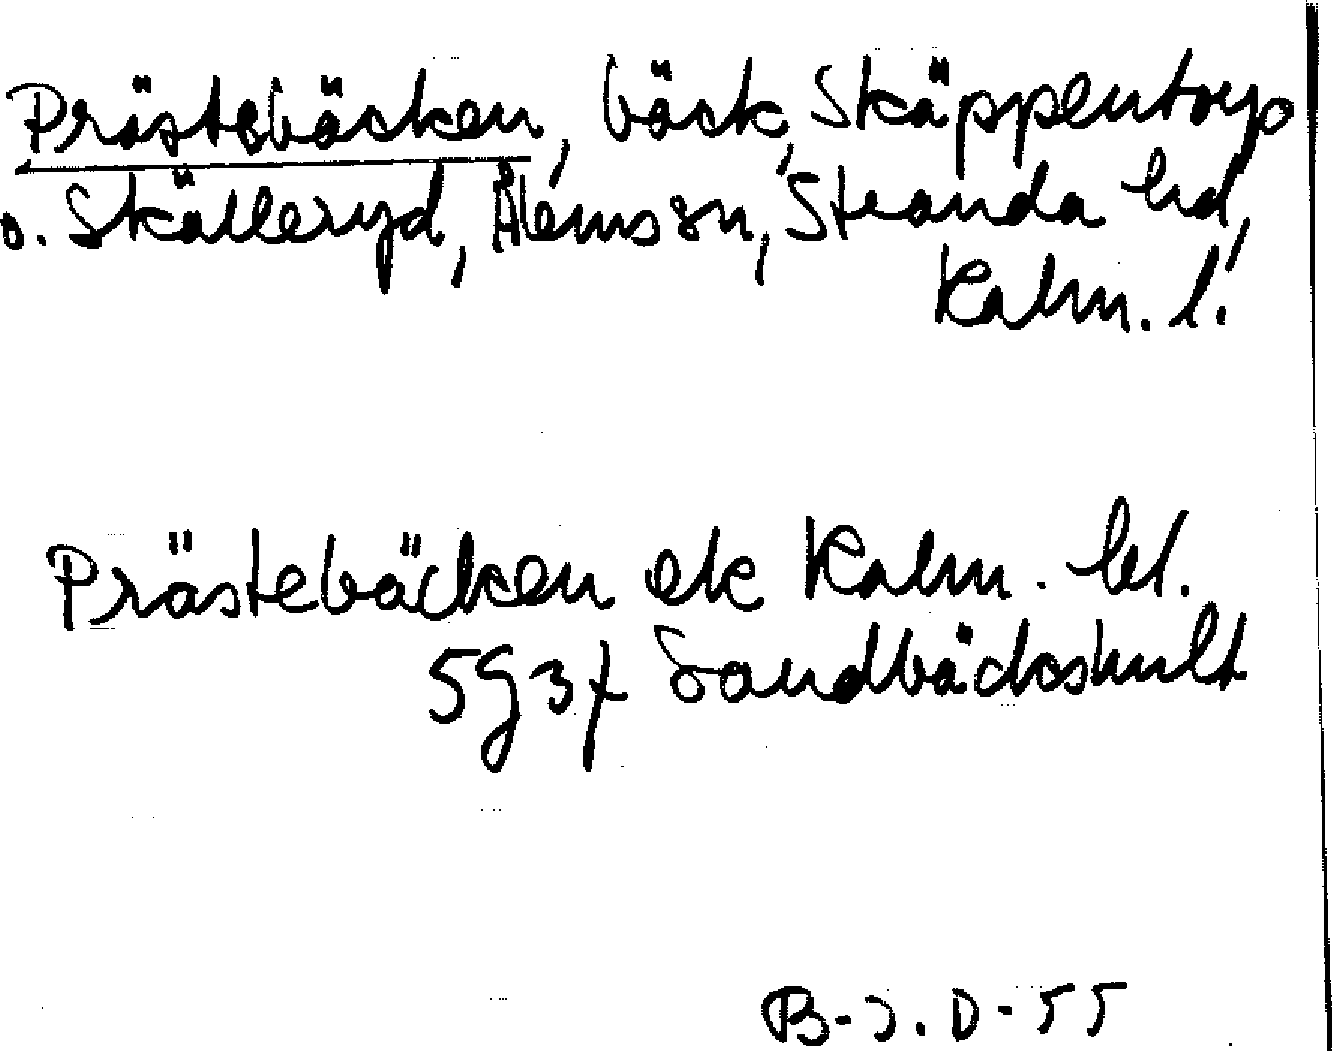 Prästebäcken, bäck, Skäppentorp
o. Skälleryd, Ålems sn, Stranda hd,
Kalm. l.
Prästebäcken ek Kalm. bl.
5G3f Sandbäckshult
B-J. D-55